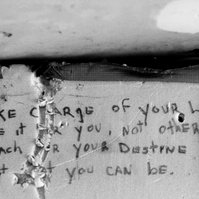 KE CHARGE OF YOUR L
E IT FOR YOU, NOT OTHER
ACH FOR YOUR DESTINE
YOU CAN BE.